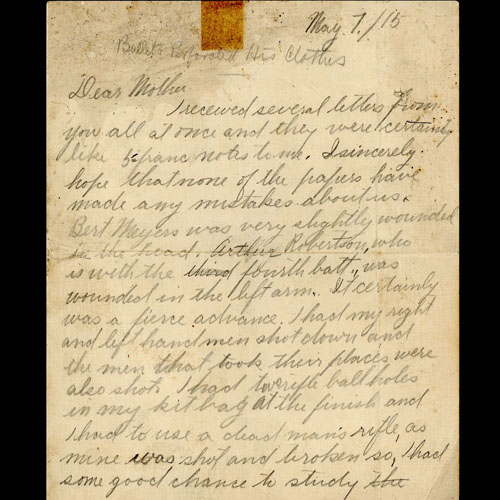 May 7./15
Bullets Perforated His Clothes
Dear Mother
I received several letters from
you all at once and they were certainly
like 5 franc notes to me. I sincerely
hope that none of the papers have
made any mistakes about us.
Bert Meyers was very slightly wounded
in the head. Arthur Robertson, who
is with the third fourth batt., was
wounded in the left arm. It certainly
was a fierce advance. I had my right
and left hand men shot down and
the men that took their places were
also shot. I had two rifle ball holes
in my kit bag at the finish and
I had to use a dead man's rifle, as
mine was shot and broken so, I had
some good chance to study the